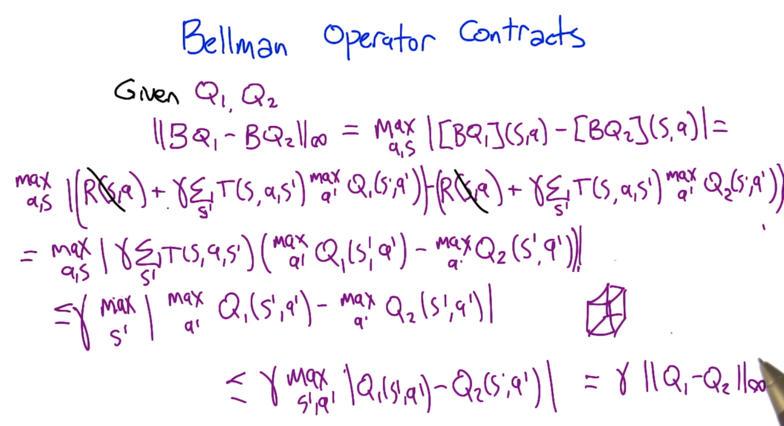 Bellman Operator Contracts
Given Q₁, Q₂
||BQ₁ - BQ₂||∞ = max_{a,s} |[BQ₁](s,a) - [BQ₂](s,a)| =
max_{a,s} |(R(s,a) + γ Σ_{s'} T(s,a,s') max_{a'} Q₁(s',a')) - (R(s,a) + γ Σ_{s'} T(s,a,s') max_{a'} Q₂(s',a'))|
= max_{a,s} | γ Σ_{s'} T(s,a,s') (max_{a'} Q₁(s',a') - max_{a'} Q₂(s',a'))|
≤ γ max_{s'} | max_{a'} Q₁(s',a') - max_{a'} Q₂(s',a')|
≤ γ max_{s',a'} |Q₁(s',a') - Q₂(s',a')| = γ ||Q₁ - Q₂||∞